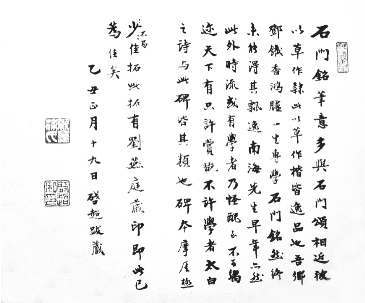 石門銘筆意多與石門頌相近彼
以草作隸此以草作楷皆逸品也吾鄉
鄧鐵香鴻臚一生專學石門銘然許
未能得其飄逸南海先生早年亦然
此外時流或有學者乃怪醜不可
迩天下有只許賞不許學者太白
之詩與此碑皆其類也碑本摩崖
少佳拓此拓有劉燕庭藏印即此已
為佳矣
乙丑正月十九日 啓超跋藏